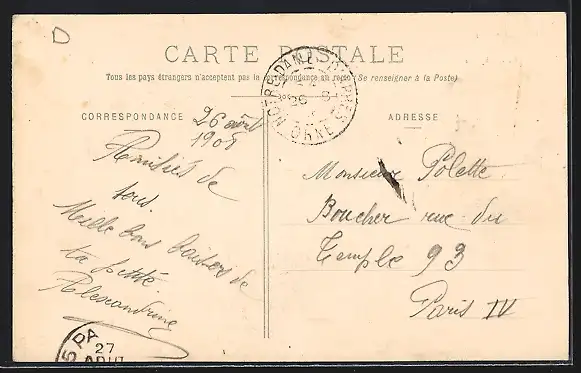 D
CARTE POSTALE
Tous les pays étrangers n'acceptent pas la correspondance au recto (Se renseigner à la Poste)
CORRESPONDANCE
26 août
1905
Amitiés de
tous.
Mille bons baisers de
ta petite
Alexandrine
NOTRE-DAME
ORNE
26 8
ADRESSE
Monsieur Polette
Boucher rue du
Temple 93
Paris IV
PA
27
AOUT